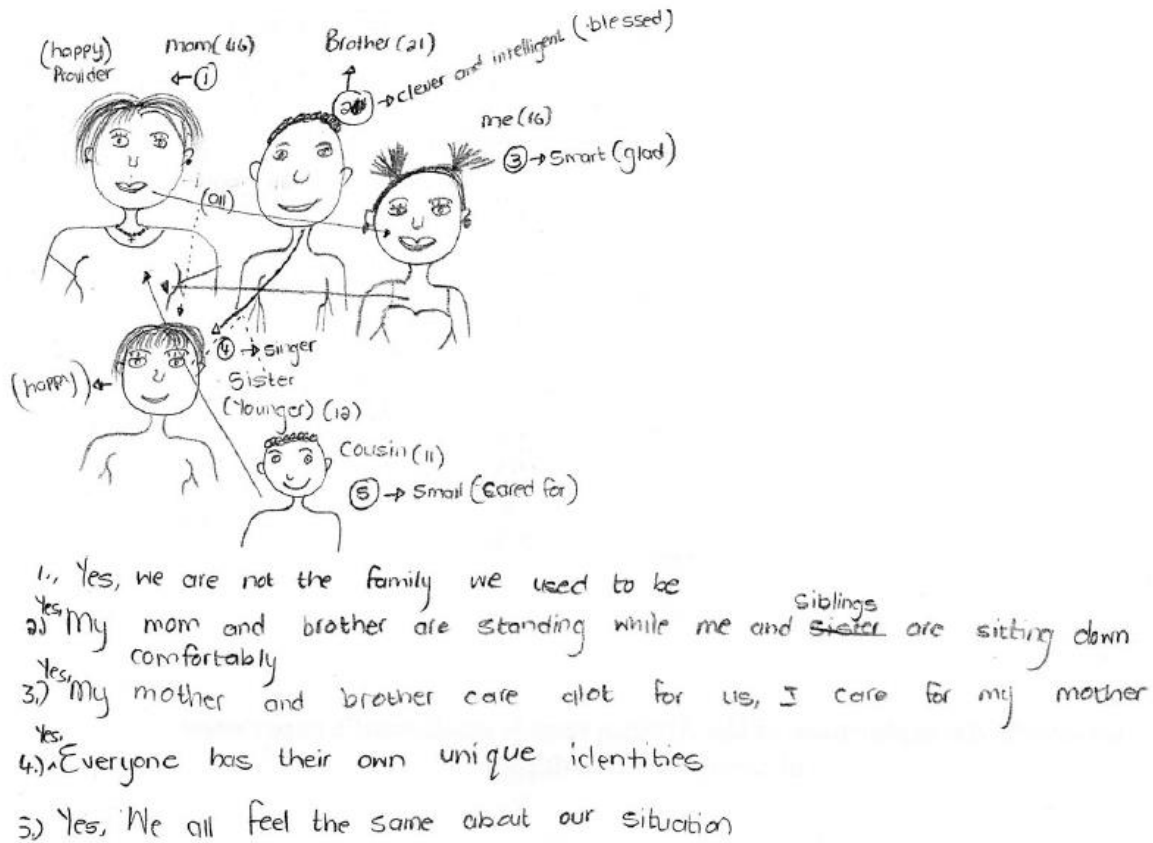 (happy) Provider
mom(46)
①
Brother (21)
2 → clever and intelligent (blessed)
me (16)
③ → Smart (glad)
(all)
④ → singer
Sister
(Younger) (12)
(happy)
Cousin (11)
⑤ → Small (Cared for)
1., Yes, we are not the family we used to be
2) Yes, My mom and brother are standing while me and siblings are sitting down
comfortably
3.) Yes, My mother and brother care alot for us, I care for my mother
4.) Yes, Everyone has their own unique identities
5.) Yes, We all feel the same about our situation